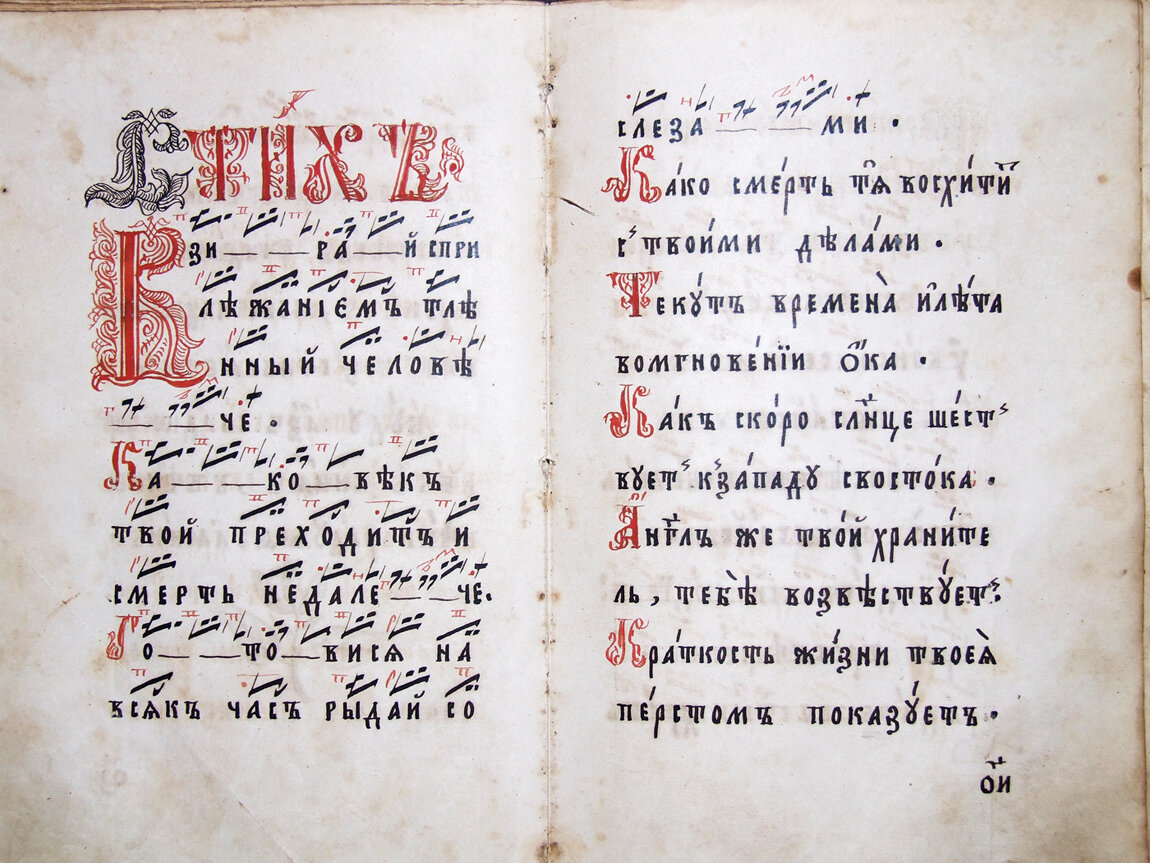 Стїхъ
Взи — — ра — й спри
лѣжанїемъ тлѣ
нный человѣ
— — че.
Ка — — ко — вѣкъ
твой преходитъ и
смерть недале — — че.
Го — — то — вися на
всякъ часъ рыдай со
слеза — — ми.
Ка́ко сме́рть тѧ̀ восхити́тъ
с твои́ми дѣла́ми.
Теку́тъ времена̀ и҆ лѣ́та
вомгнове́нїи о҆́ка.
Ка́къ ско́ро сл҃нце ше́ст
вуетъ к за́паду свосто́ка.
А҆́нг҃лъ же тво́й храни́те
ль, тебѣ̀ возвѣствуетъ:
Кра́ткость жи́зни твоея̀
пе́рстомъ пока́зуетъ.
ѻ҃и